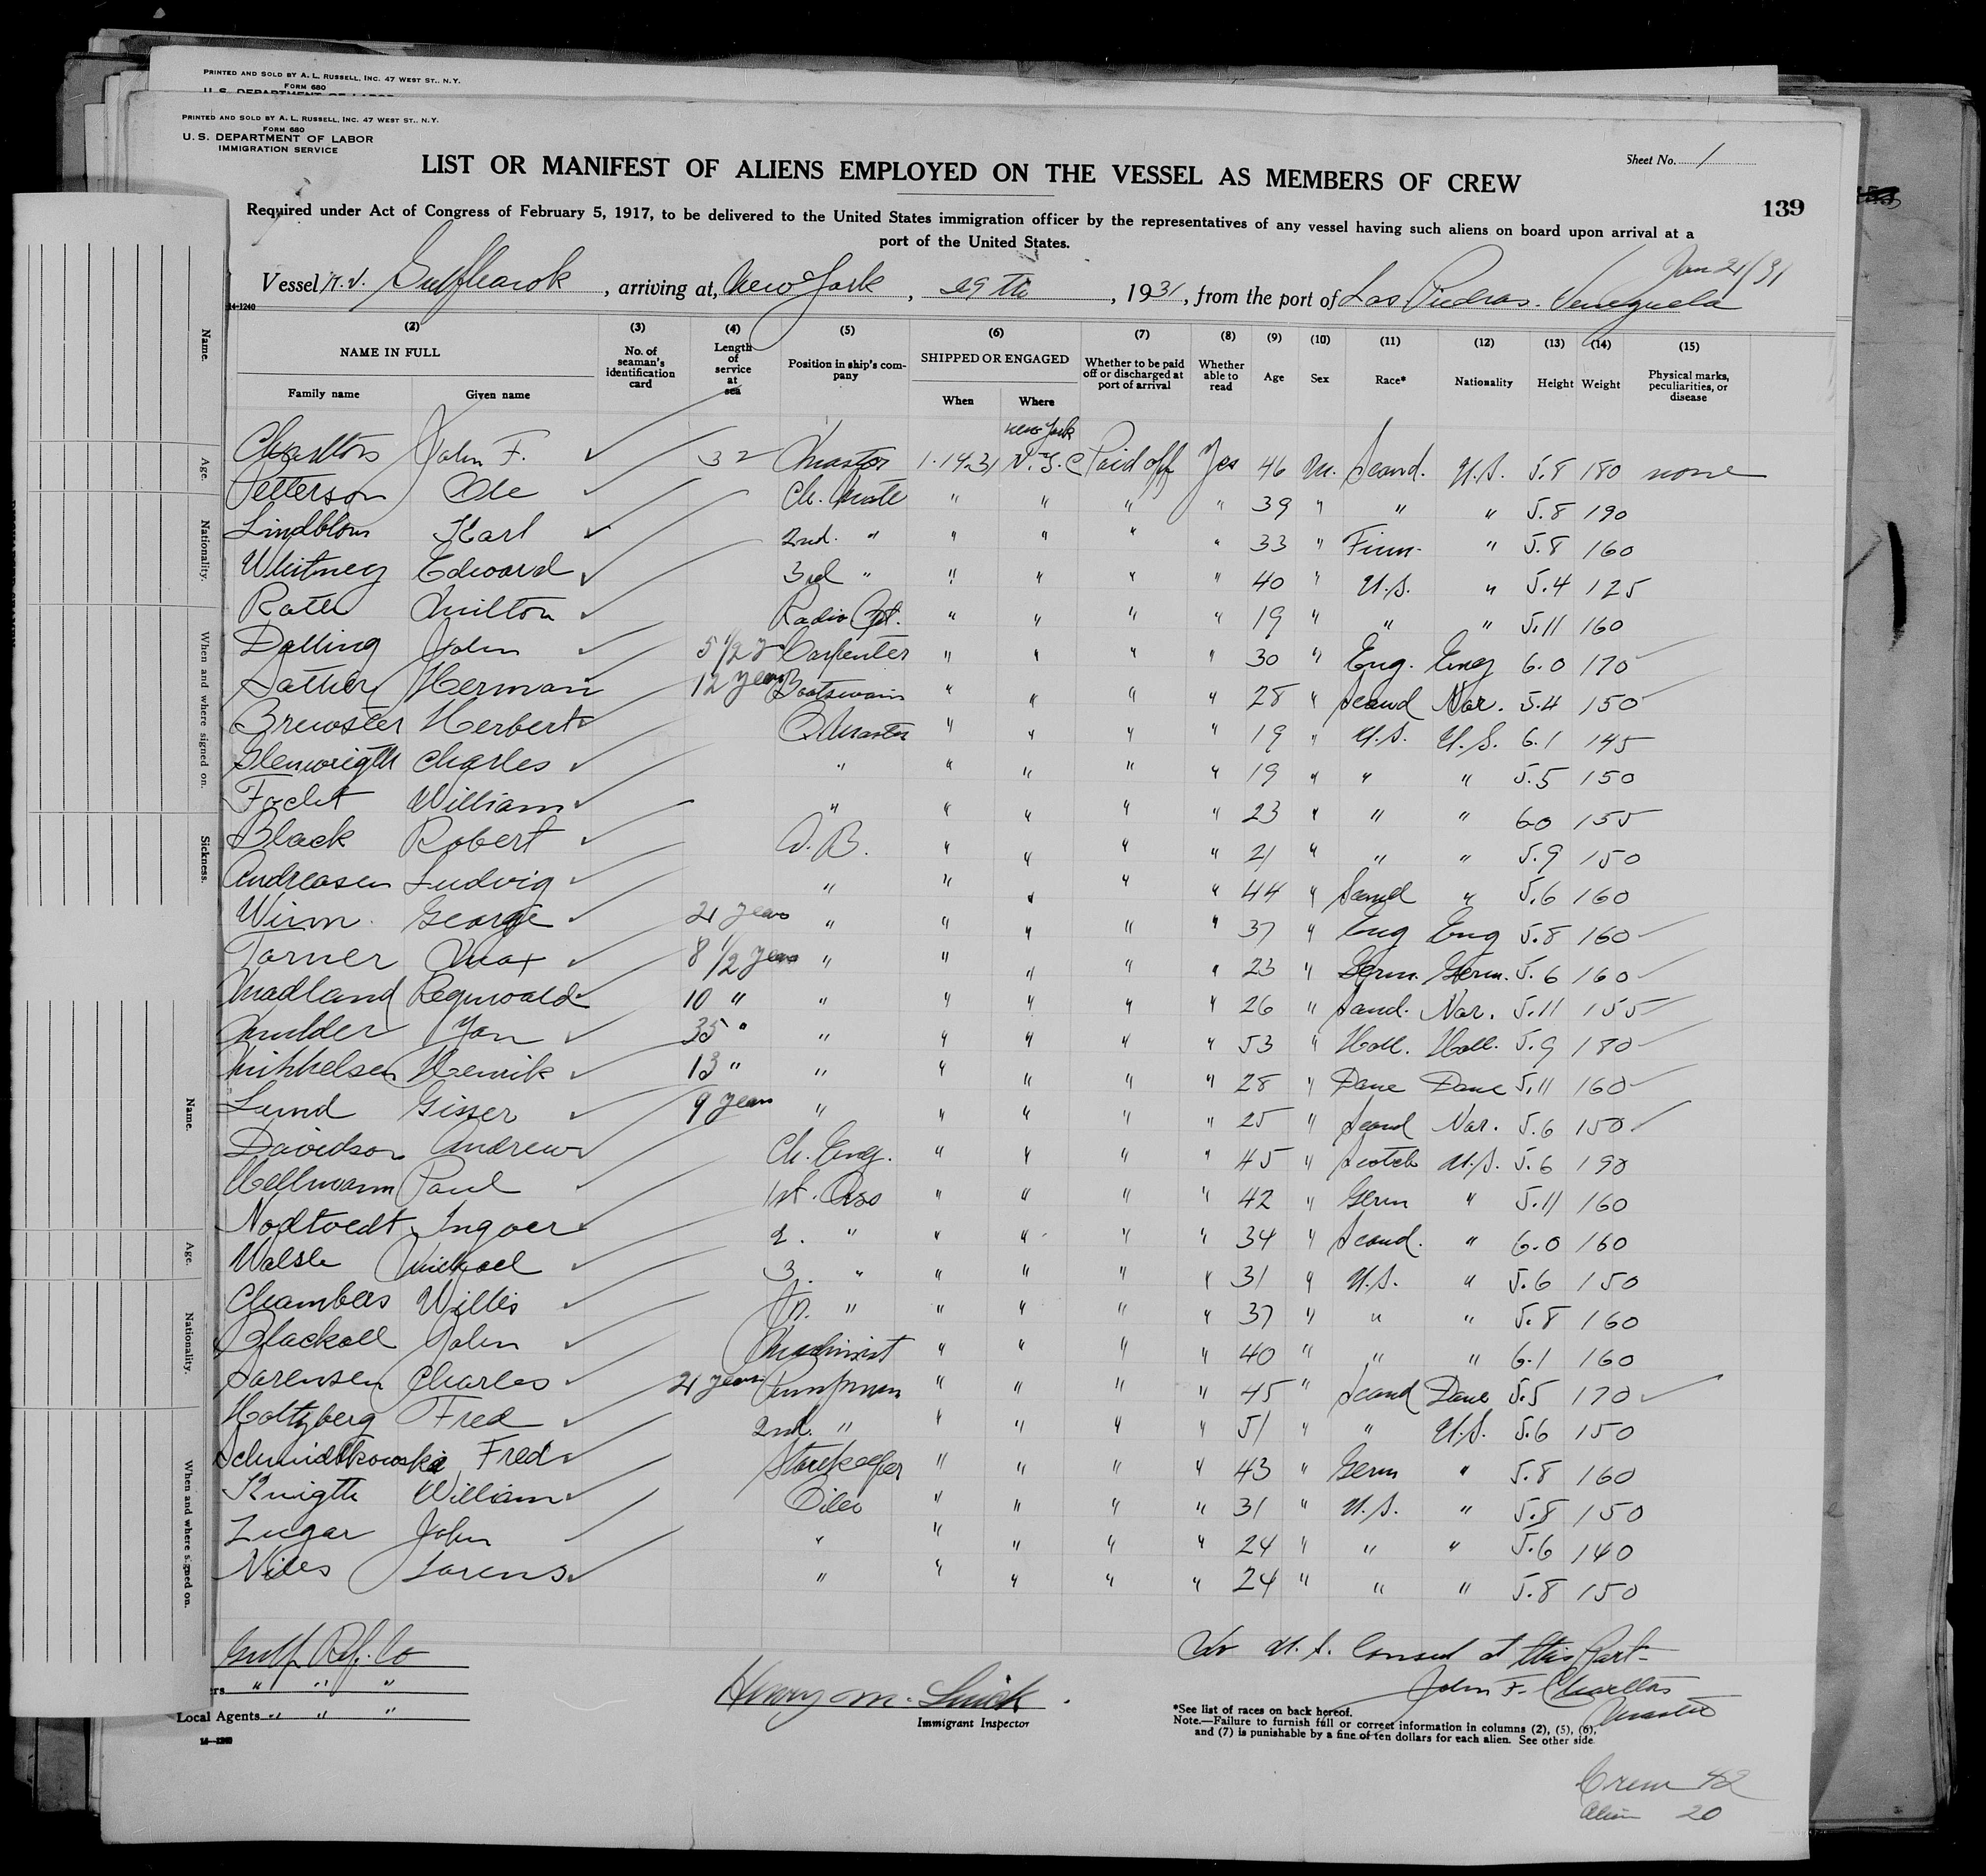 PRINTED AND SOLD BY A. L. RUSSELL, INC. 47 WEST ST., N.Y.
FORM 680
U.S. DEPARTMENT OF LABOR
PRINTED AND SOLD BY A. L. RUSSELL, INC. 47 WEST ST., N.Y.
FORM 680
U.S. DEPARTMENT OF LABOR
IMMIGRATION SERVICE
Sheet No. 1
LIST OR MANIFEST OF ALIENS EMPLOYED ON THE VESSEL AS MEMBERS OF CREW
139
Required under Act of Congress of February 5, 1917, to be delivered to the United States immigration officer by the representatives of any vessel having such aliens on board upon arrival at a
port of the United States.
Jan 21/31
Vessel Gulfhawk, arriving at New York, 29th, 1931, from the port of Las Piedras. Venezuela
14-1240
(2) (3) (4) (5) (6) (7) (8) (9) (10) (11) (12) (13) (14) (15)
NAME IN FULL No. of seaman's identification card Length of service at sea Position in ship's company SHIPPED OR ENGAGED Whether to be paid off or discharged at port of arrival Whether able to read Age Sex Race* Nationality Height Weight Physical marks, peculiarities, or disease
Family name Given name When Where
New York
Charlton John F. 32 Master 1.14.31 N.Y.C Paid off Yes 46 M. Scand. U.S. 5.8 180 none
Petterson Ole Ch. Mate " " " " 39 " " " 5.8 190
Lindblom Karl 2nd. " " " " " 33 " Finn. " 5.8 160
Whitney Edward 3rd " " " " " 40 " U.S. " 5.4 125
Rath Milton Radio Opt. " " " " 19 " " " 5.11 160
Dalling John 5 1/2 y Carpenter " " " " 30 " Eng. Eng 6.0 170
Sather Herman 12 years Bootswain " " " " 28 " Scand Nor. 5.4 150
Brewster Herbert Q Master " " " " 19 " U.S. U.S. 6.1 145
Glenwrigth Charles " " " " " 19 " " " 5.5 150
Focht William " " " " " 23 " " " 6.0 155
Black Robert A.B. " " " " 21 " " " 5.9 150
Andreasen Ludvig " " " " " 44 " Scand " 5.6 160
Winn George 21 years " " " " " 37 " Eng Eng 5.8 160
Torner Max 8 1/2 years " " " " " 23 " Germ. Germ. 5.6 160
Madland Reginwald 10 " " " " " " 26 " Scand. Nor. 5.11 155
Mulder Jan 35 " " " " " " 53 " Holl. Holl. 5.9 180
Mikkelsen Henrik 13 " " " " " " 28 " Dane Dane 5.11 160
Lund Gisser 9 years " " " " " 25 " Scand Nor. 5.6 150
Davidson Andrew Ch. Eng. " " " " 45 " Scotch U.S. 5.6 190
Hellmann Paul 1st. Ass " " " " 42 " Germ " 5.11 160
Nodtvedt Ingver 2. " " " " " 34 " Scand. " 6.0 160
Walsh Michael 3. " " " " " 31 " U.S. " 5.6 150
Chambers Willis Jn. " " " " " 37 " " " 5.8 160
Blackall John Machinist " " " " 40 " " " 6.1 160
Sorensen Charles 21 years Pumpman " " " " 45 " Scand Dane 5.5 170
Holtzberg Fred 2nd. " " " " " 51 " " U.S. 5.6 150
Schmidtkowski Fred Storekeeper " " " " 43 " Germ " 5.8 160
Knigth William Oiler " " " " 31 " U.S. " 5.8 150
Zugar John " " " " " 24 " " " 5.6 140
Niles Lorens " " " " " 24 " " " 5.8 150
Gulf Rf. Co
rs " " "
Local Agents " " "
14-1240
Henry M.
Immigrant Inspector
No U.S. Consul at this Port
John F. Charlton
Master
*See list of races on back hereof.
Note.—Failure to furnish full or correct information in columns (2), (5), (6),
and (7) is punishable by a fine of ten dollars for each alien. See other side
Crew 42
Alien 20
Name.
Age.
Nationality.
When and where signed on.
Sickness.
Name.
Age.
Nationality.
When and where signed on.